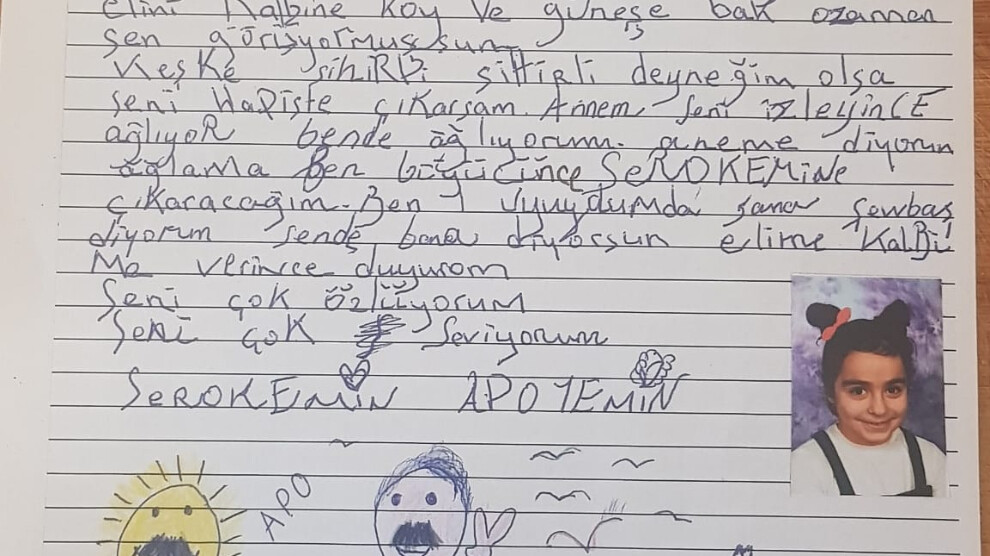 elini Kalbine Koy ve güneşe bak ozaman
sen görüşyormuşsun
Keşke sihirli deyneğim olsa
seni Hapiste çıkarsam. Annem seni izleyinCE
ağlıyoR bende ağlıyorum. aneme diyorun
ağlama Ben büyüyünce SeROKEMiNe
çıKaracağım. Ben uyuydumda sana şewbaş
diyorum sende bana diyorsun elime Kalbi
Me verince duyurom
Seni çok özlüyorum
Seni çoK Seviyorum
SeROKEMiN APOYEMiN
APO